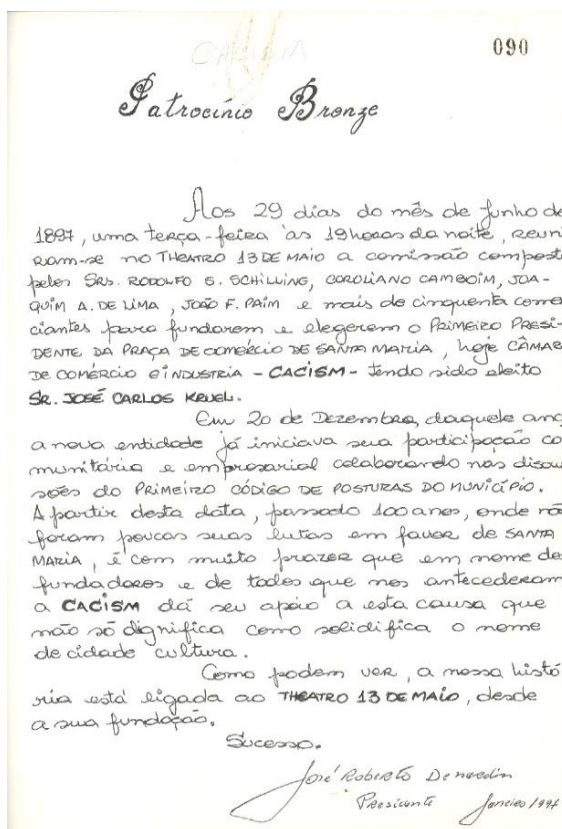 CACISM
090
Patrocínio Bronze
Aos 29 dias do mês de junho de
1897, uma terça-feira às 19 horas da noite, reuni
ram-se no THEATRO 13 DE MAIO a comissão compost
pelos SRS. RODOLFO G. SCHILLING, COROLIANO CAMBOIM, JOA-
QUIM A. DE LIMA, JOÃO F. PAIM e mais de cinquenta comer
ciantes para fundarem e elegerem o PRIMEIRO PRESI-
DENTE DA PRAÇA DE COMÉRCIO DE SANTA MARIA, hoje CÂMAR
DE COMÉRCIO E INDUSTRIA - CACISM - tendo sido eleito
SR. JOSÉ CARLOS KRUEL.
Em 20 de Dezembro, daquele ano
a nova entidade já iniciava sua participação co
munitária e empresarial colaborando nas discu
sões do PRIMEIRO CÓDIGO DE POSTURAS DO MUNICÍPIO.
A partir desta data, passado 100 anos, onde nã
foram poucas suas lutas em favor de SANTA
MARIA, é com muito prazer que em nome de
fundadores e de todos que nos antecederam
a CACISM dá seu apoio a esta causa que
não só dignifica como solidifica o nome
de cidade cultura.
Como podem ver, a nossa histó
ria está ligada ao THEATRO 13 DE MAIO, desde
a sua fundação.
Sucesso.
José Roberto Denardin
Presidente Janeiro/1997